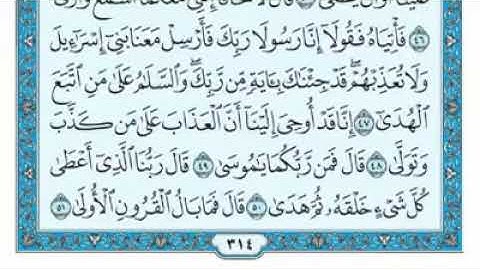 قَالَ لَا تَخَافَآ إِنَّنِى مَعَكُمَآ أَسْمَعُ وَأَرَىٰ
٤٦ فَأْتِيَاهُ فَقُولَآ إِنَّا رَسُولَا رَبِّكَ فَأَرْسِلْ مَعَنَا بَنِىٓ إِسْرَٰٓءِيلَ
وَلَا تُعَذِّبْهُمْ ۖ قَدْ جِئْنَٰكَ بِـَٔايَةٍ مِّن رَّبِّكَ ۖ وَٱلسَّلَٰمُ عَلَىٰ مَنِ ٱتَّبَعَ
ٱلْهُدَىٰٓ ٤٧ إِنَّا قَدْ أُوحِىَ إِلَيْنَآ أَنَّ ٱلْعَذَابَ عَلَىٰ مَن كَذَّبَ
وَتَوَلَّىٰ ٤٨ قَالَ فَمَن رَّبُّكُمَا يَٰمُوسَىٰ ٤٩ قَالَ رَبُّنَا ٱلَّذِىٓ أَعْطَىٰ
كُلَّ شَىْءٍ خَلْقَهُۥ ثُمَّ هَدَىٰ ٥٠ قَالَ فَمَا بَالُ ٱلْقُرُونِ ٱلْأُولَىٰ ٥١
٣١٤